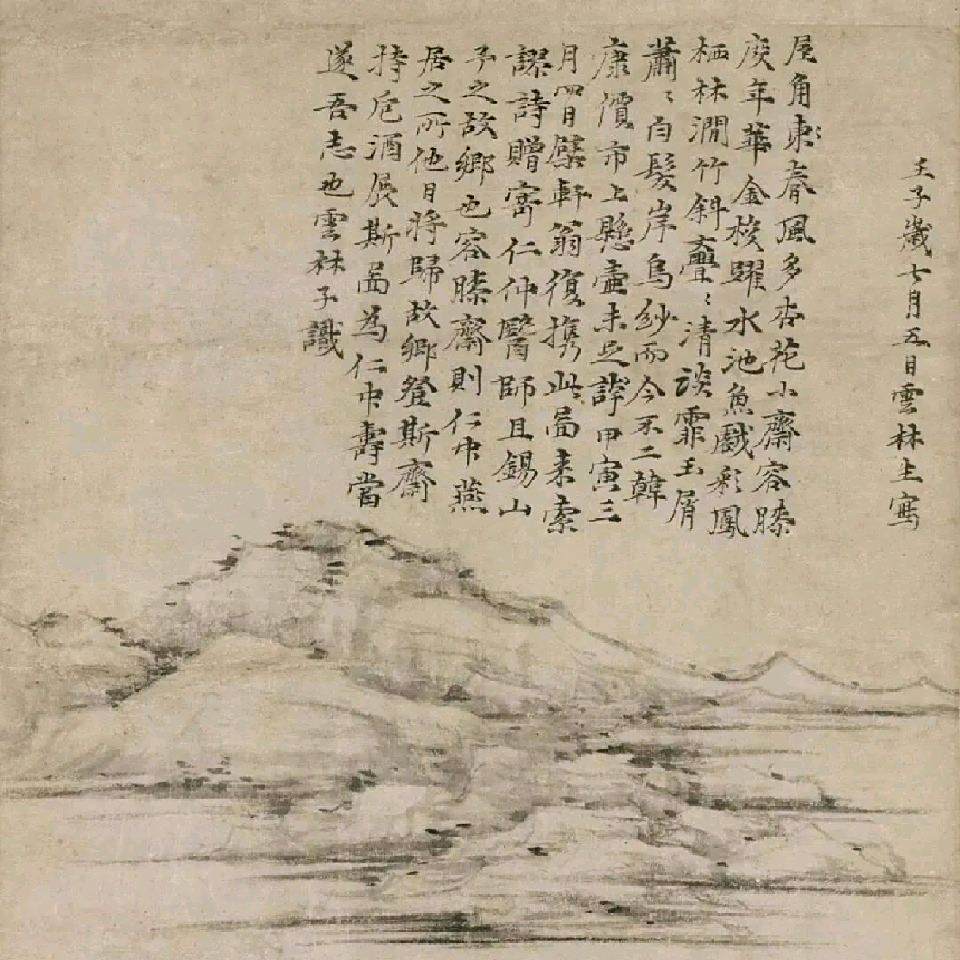 壬子歲七月五日雲林生寫
屋角東春風多杏花小齋容膝
度年華金梭躍水池魚戲彩鳳
栖林澗竹斜亹〻清談霏玉屑
蕭〻白髮岸烏紗而今不二韓
康價市上懸壺未足誇甲寅三
月四日檗軒翁復攜此圖來索
謬詩贈寄仁仲醫師且錫山
予之故鄉也容膝齋則仁中燕
居之所他日將歸故鄉登斯齋
持卮酒展斯圖為仁中壽當
遂吾志也雲林子識